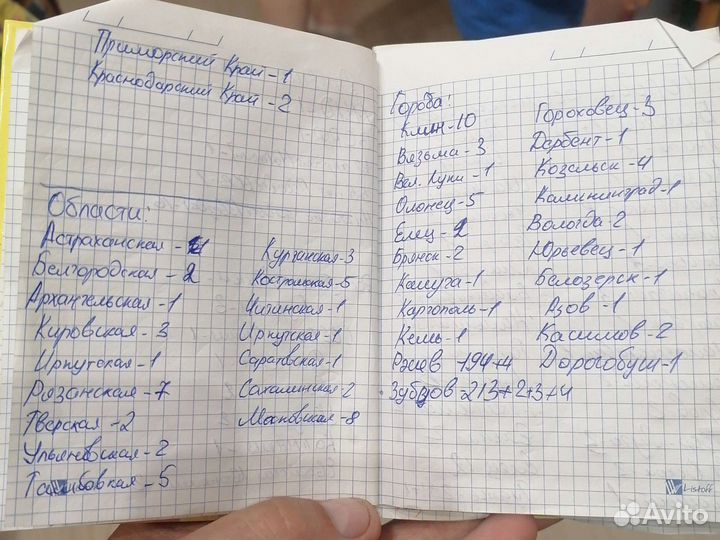 Приморский Край - 1
Краснодарский Край - 2
Области:
Астраханская -
Белгородская - 2
Архангельская - 1
Кировская - 3
Иркутская - 1
Рязанская - 7
Тверская - 2
Ульяновская - 2
Тамбовская - 5
Курганская - 3
Костромская - 5
Читинская - 1
Иркутская - 1
Саратовская - 1
Сахалинская - 2
Московская - 8
Города:
Клин - 10
Вязьма - 3
Вел. Луки - 1
Олонец - 5
Елец - 2
Брянск - 2
Калуга - 1
Каргополь - 1
Кемь - 1
Ржев - 194+4
Зубцов - 213+2+3+4
Гороховец - 3
Дербент - 1
Козельск - 4
Калининград - 1
Вологда 2
Юрьевец - 1
Белозерск - 1
Азов - 1
Касимов - 2
Дорогобуш - 1
Listoff
Avito